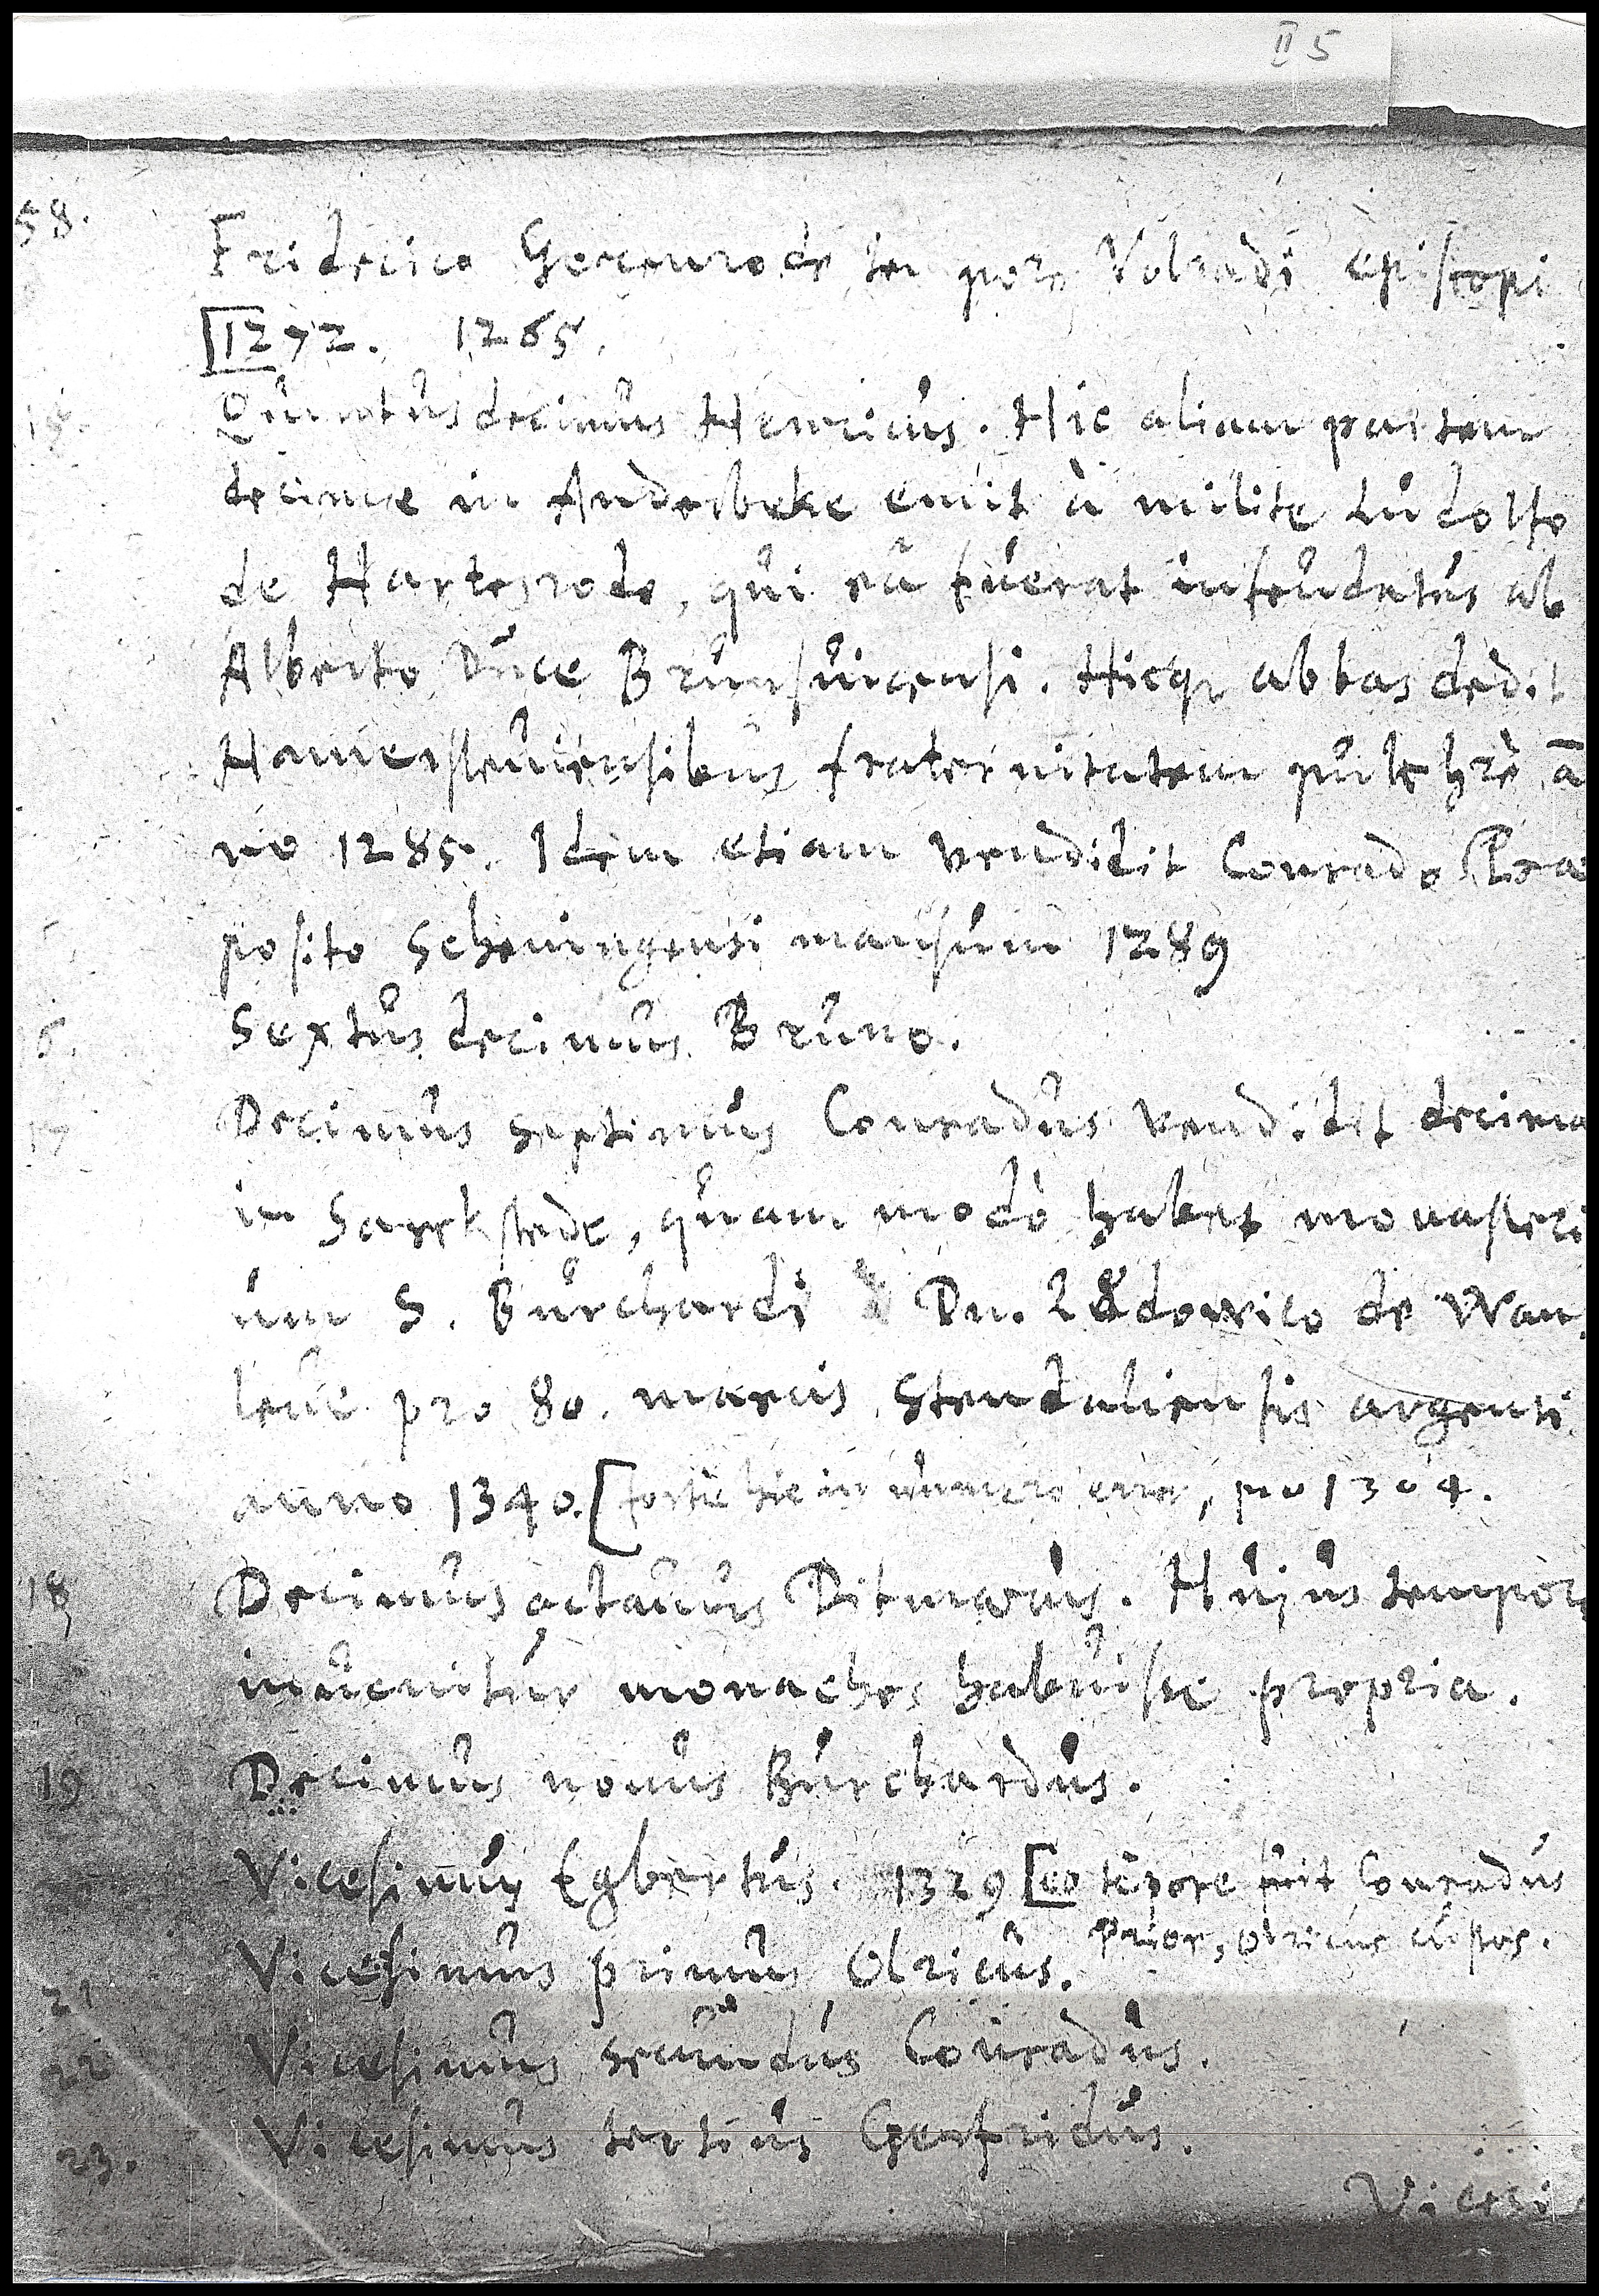 II 5
58.
Friderico Gerenrode tempore Volradi episcopi
1272. 1265.
Quintus decimus Henricus. Hic aliam partem
decimæ in Andesbeke emit à milite Ludolfo
de Hartesrode, qui eâ fuerat infeudatus ab
Alberto Duce Brunsuicensi. Hicq; abbas dedit
Hamersleuiensibus fraternitatem pulchrè ā
no 1285. Idem etiam vendidit Conrado Præ
posito Scheningensi mansum 1289
6. Sextus decimus Bruno.
17 Decimus septimus Conradus vendidit decima
in Sarckstede, quam modò habet monasteri
um S. Burchardi Dn. Ludowico de Wan
leue pro 80. marcis Stendaliensis argenti
anno 1340. [forte hic in numero error, pro 1304.
18 Decimus octauus Ditmarus. Hujus tempore
inuenitur monachos habuisse propria.
19 Decimus nonus Burchardus.
Vicesimus Egbertus. 1329 [eo tēpore fuit Conradus
Prior, Olricus custos.
21 Vicesimus primus Olricus.
22 Vicesimus secundus Conradus.
23. Vicesimus tertius Gerfridus.
Vicesi